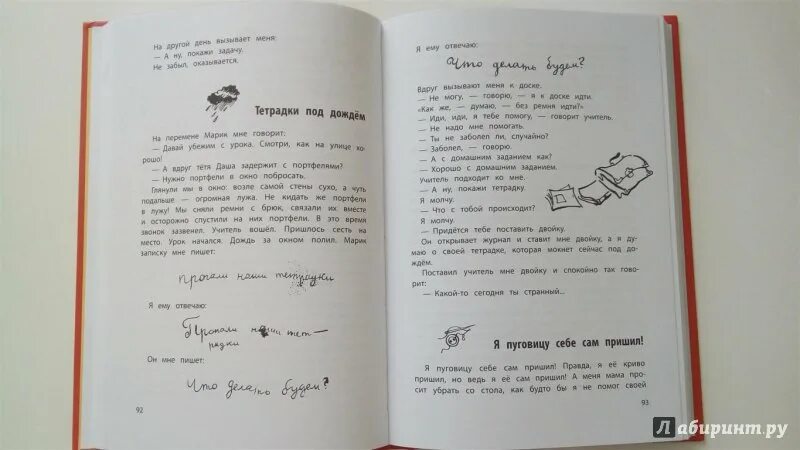 На другой день вызывает меня:
— А ну, покажи задачу.
Не забыл, оказывается.
Тетрадки под дождём
На перемене Марик мне говорит:
— Давай убежим с урока. Смотри, как на улице хо-
рошо!
— А вдруг тётя Даша задержит с портфелями?
— Нужно портфели в окно побросать.
Глянули мы в окно: возле самой стены сухо, а чуть
подальше — огромная лужа. Не кидать же портфели
в лужу! Мы сняли ремни с брюк, связали их вместе
и осторожно спустили на них портфели. В это время
звонок зазвенел. Учитель вошёл. Пришлось сесть на
место. Урок начался. Дождь за окном полил. Марик
записку мне пишет:
Пропали наши тетрадки
Я ему отвечаю:
Пропали наши тет—
радки
Он мне пишет:
Что делать будем?
92
Я ему отвечаю:
Что делать будем?
Вдруг вызывают меня к доске.
— Не могу, — говорю, — я к доске идти.
«Как же, — думаю, — без ремня идти?»
— Иди, иди, я тебе помогу, — говорит учитель.
— Не надо мне помогать.
— Ты не заболел ли, случайно?
— Заболел, — говорю.
— А с домашним заданием как?
— Хорошо с домашним заданием.
Учитель подходит ко мне.
— А ну, покажи тетрадку.
Я молчу.
— Что с тобой происходит?
Я молчу.
— Придётся тебе поставить двойку.
Он открывает журнал и ставит мне двойку, а я ду-
маю о своей тетрадке, которая мокнет сейчас под до-
ждём.
Поставил учитель мне двойку и спокойно так гово-
рит:
— Какой-то сегодня ты странный...
Я пуговицу себе сам пришил!
Я пуговицу себе сам пришил! Правда, я её криво
пришил, но ведь я её сам пришил! А меня мама про-
сит убрать со стола, как будто бы я не помог своей
93
Лабиринт.ру